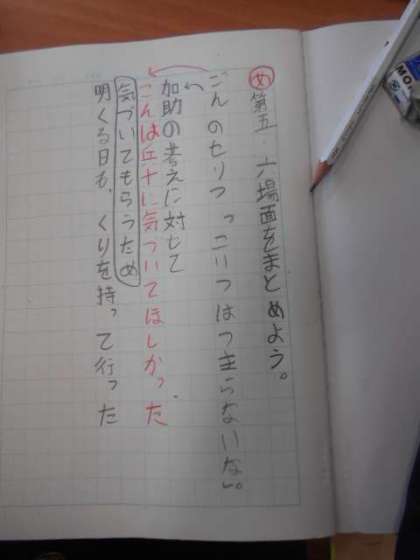 め 第五・六場面をまとめよう。
ごんのセリフ「こいつはつまらないな。」
加助の考えに対して
ごんは兵十に気づいてほしかった
気づいてもらうため
明くる日も、くりを持って行った